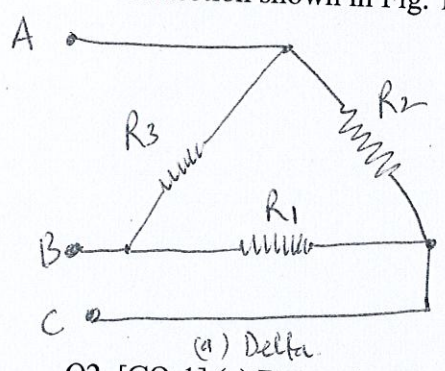 shown in Fig.
A
R2
R3
R1
B
C
(a) Delta